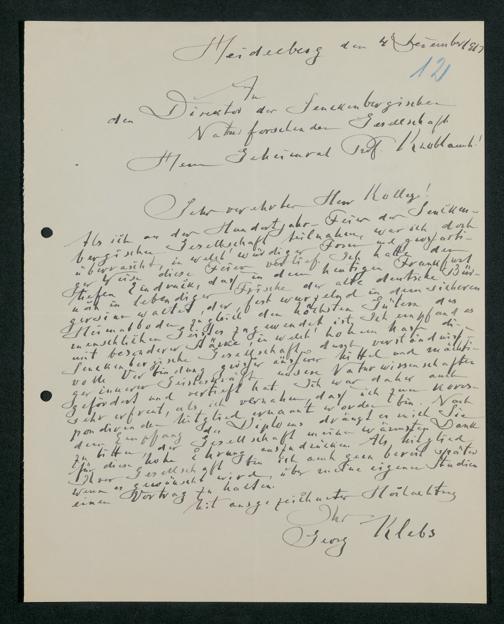 Heidelberg den 4 Dezember 1917
12
An
den Direktor der Senckenbergischen
Naturforschenden Gesellschaft
Herrn Geheimrat Prof. Knoblauch!
Sehr verehrter Herr Kollege!
Als ich an der Hundertjahr-Feier der Sencken-
bergischen Gesellschaft teilnahm, war ich doch
überrascht, in welch' würdiger Form und grossarti-
ger Weise diese Feier verlief. Ich hatte den
tiefen Eindruck, dass in dem heutigen Frankfurt
noch in lebendiger Frische der alte deutsche Bür-
gersinn waltet, der, fest wurzelnd in dem sicheren
Heimatboden, zugleich den höchsten Gütern des
menschlichen Geistes zugewendet ist. Ich empfand es
mit besonderer Stärke, in welch' hohem Masse die
Senckenbergische Gesellschaft durch verständnis-
volle Verbindung grosser äusserer Mittel und mächti-
ger innerer Geisteskraft unsere Naturwissenschaften
gefördert und vertieft hat. Ich war daher auch
sehr erfreut, als ich vernahm, dass ich zum korres-
pondierenden Mitglied ernannt worden bin. Nach
dem Empfang des Diploms drängt es mich Sie
zu bitten, der Gesellschaft meinen wärmsten Dank
für diese hohe Ehrung auszudrücken. Als Mitglied
Ihrer Gesellschaft bin ich auch gern bereit später
wenn es gewünscht wird, über meine eigenen Studien
einen Vortrag zu halten.
Mit ausgezeichneter Hochachtung
Ihr
Georg Klebs